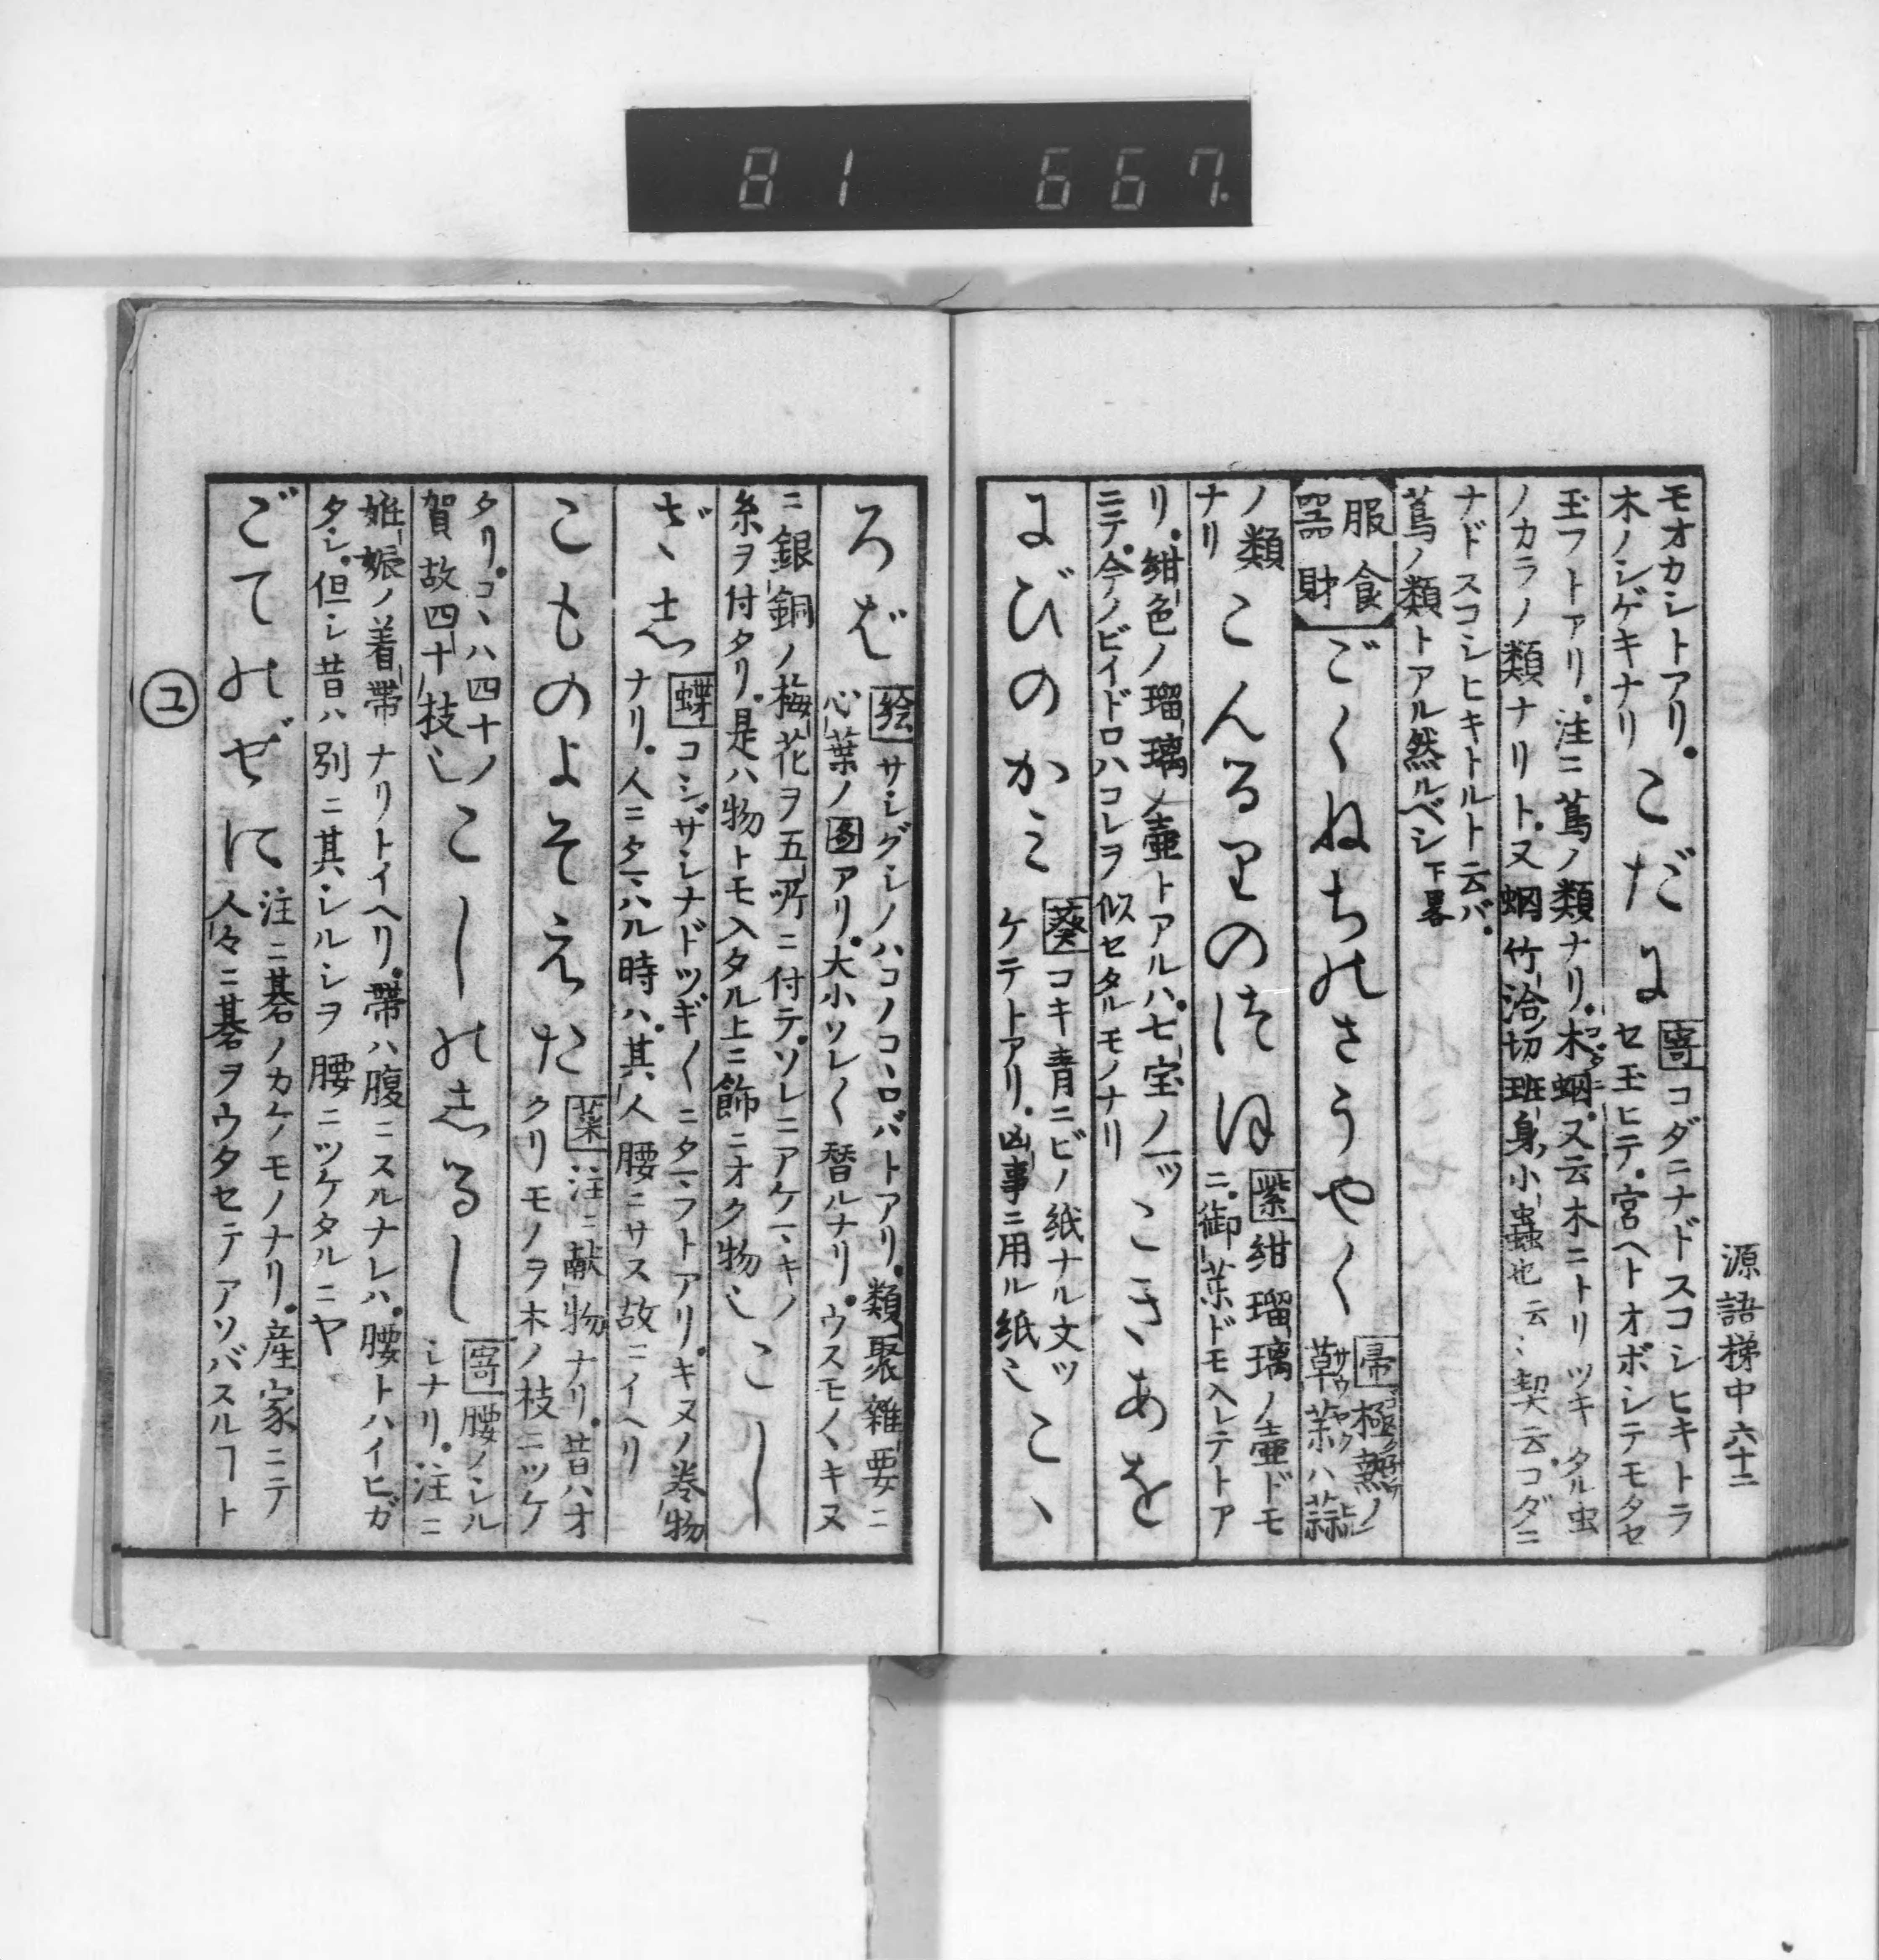 81 667.
源語梯中 六十二
モオカシトアリ。
木ノシゲキナリ
こだに
寄 コダニナドスコシヒキトラ
セ玉ヒテ。宮ヘトオボシテモタセ
玉フトアリ。注ニ蔦ノ類ナリ。木蜠。又云木ニトリツキタル虫
ノカラノ類ナリト。又蜠竹洽切班身小蟲也云〻契云コダニ
ナドスコシヒキトルト云バ。
蔦ノ類トアル然ルベシ下畧
服食
器財
ごくねちのさうやく
帚 極熱ノ
草薬ハ蒜
ノ類
ナリ
こんるりのつほ
紫 紺瑠璃ノ壷ドモ
ニ。御薬ドモ入レテトア
リ。紺色ノ瑠璃ノ壷トアルハ。七宝ノ一ツ
ニテ。今ノビイドロハコレヲ似セタルモノナリ
こきあを
にびのかミ
葵 コキ青ニビノ紙ナル文ツ
ケテトアリ。凶事ニ用ル紙也
こゝ
ろば
絵 サシグシノハコノコヽロバトアリ。類聚雑要ニ
心葉ノ図アリ。大小ソレ〱替ルナリ。ウスモノヽキヌ
ニ銀銅ノ梅花ヲ五所ニ付テ。ソレニアケマキノ
糸ヲ付タリ。是ハ物トモ入タル上ニ飾ニオク物也
こし
ざゝし
蝶 コシザシナドツギ〱ニタマフトアリ。キヌノ巻物
ナリ。人ニタマハル時ハ。其人腰ニサス故ニイヘリ
こものよそえた
菜 注ニ献物ナリ。昔ハオ
クリモノヲ木ノ枝ニツケ
タリ。コヽハ四十ノ
賀故四十枝也
こしのしるし
寄 腰ノシル
シナリ。注ニ
姙娠ノ着帯ナリトイヘリ。帯ハ腹ニスルナレハ。腰トハイヒガ
タシ。但シ昔ハ別ニ其シルシヲ腰ニツケタルニヤ
ごてのぜに
注ニ碁ノカケモノナリ。産家ニテ
人々ニ碁ヲウタセテアソバスルヿト
ユ